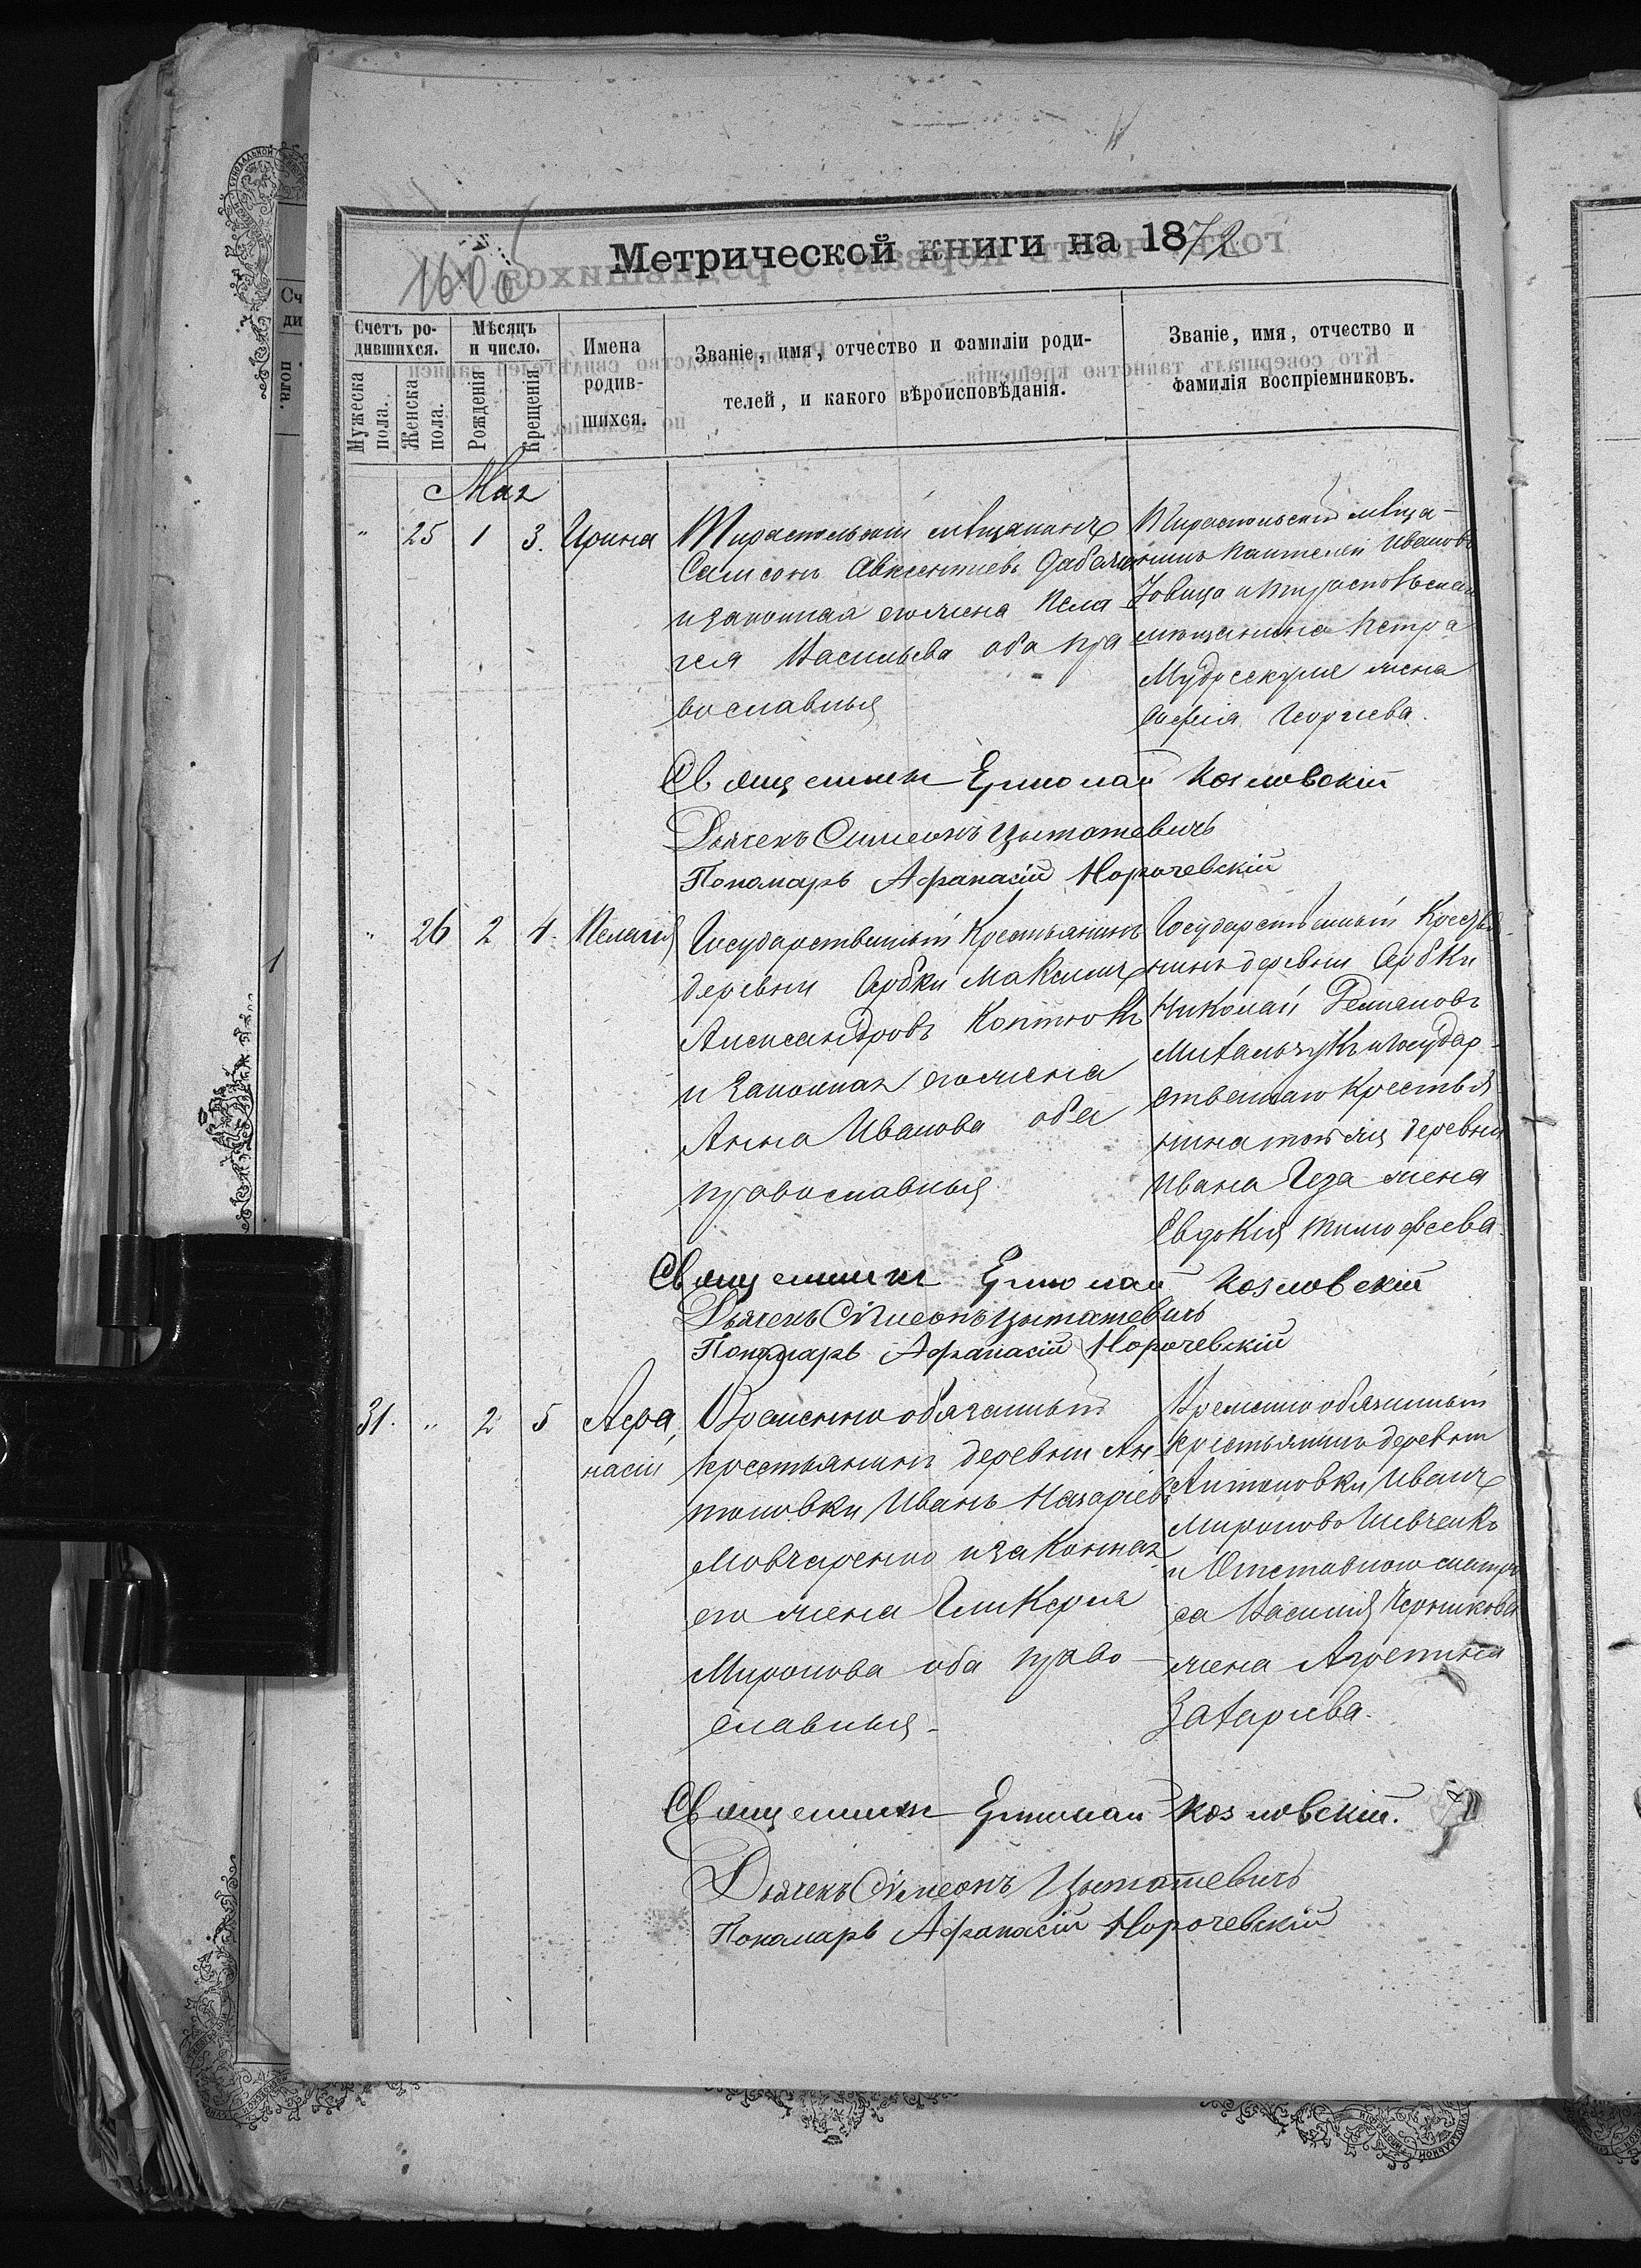 Метрической книги на 1872
Счетъ ро-
дившихся.
Мужеска
пола.
Женска
пола.
Мѣсяцъ
и число.
Рожденія
Крещенія
Имена
родив-
шихся.
Званіе, имя, отчество и фамиліи роди-
телей, и какого вѣроисповѣданія.
Званіе, имя, отчество и
фамилія воспріемниковъ.
Мая
" 25 1 3. Ирина
Тираспольскій мѣщанинъ
Самсонъ Авксентіевъ
и законная его жена Пела
гея Васильева оба пра
вославныя
Тираспольскій мѣща-
нинъ Пантелей Ивановъ
и тираспольскаго
мѣщанина Петра
жена
Софія Георгіева.
Священникъ Ермолай Козловскій
Дьячекъ Симеонъ Цытатевичъ
Пономарь Афанасій Норочевскій
" 26 2 4. Пелагія
Государственный Крестьянинъ
деревни Сербки Максимъ
Александровъ Коптюкъ
и Законная его жена
Анна Иванова оба
православныя
Государственный Крестья-
нинъ деревни Сербки
Николай Демяновъ
Михальчукъ и Государ-
ственнаго Крестья
нина той же деревни
Ивана Геза жена
Евдокія Тимофеева.
Священникъ Ермолай Козловскій
Дьячекъ Симеонъ Цытатевичъ
Пономарь Афанасій Норочевскій
31. " 2 5 Афа,
насій
Временно обязанный
крестьянинъ деревни Ан-
тоновки Иванъ Назаріевъ
Мовчаренко и законная
его жена Гликерія
Миронова оба право-
славныя.
Временно обязанный
крестьянинъ деревни
Антоновки Иванъ
Мироновъ Шевченко
и Отставного матро
са Василія Черникова
жена Агрепина
Захаріева.
Священникъ Ермолай Козловскій.
Дьячекъ Симеонъ Цытатевичъ
Пономарь Афанасій Норочевскій